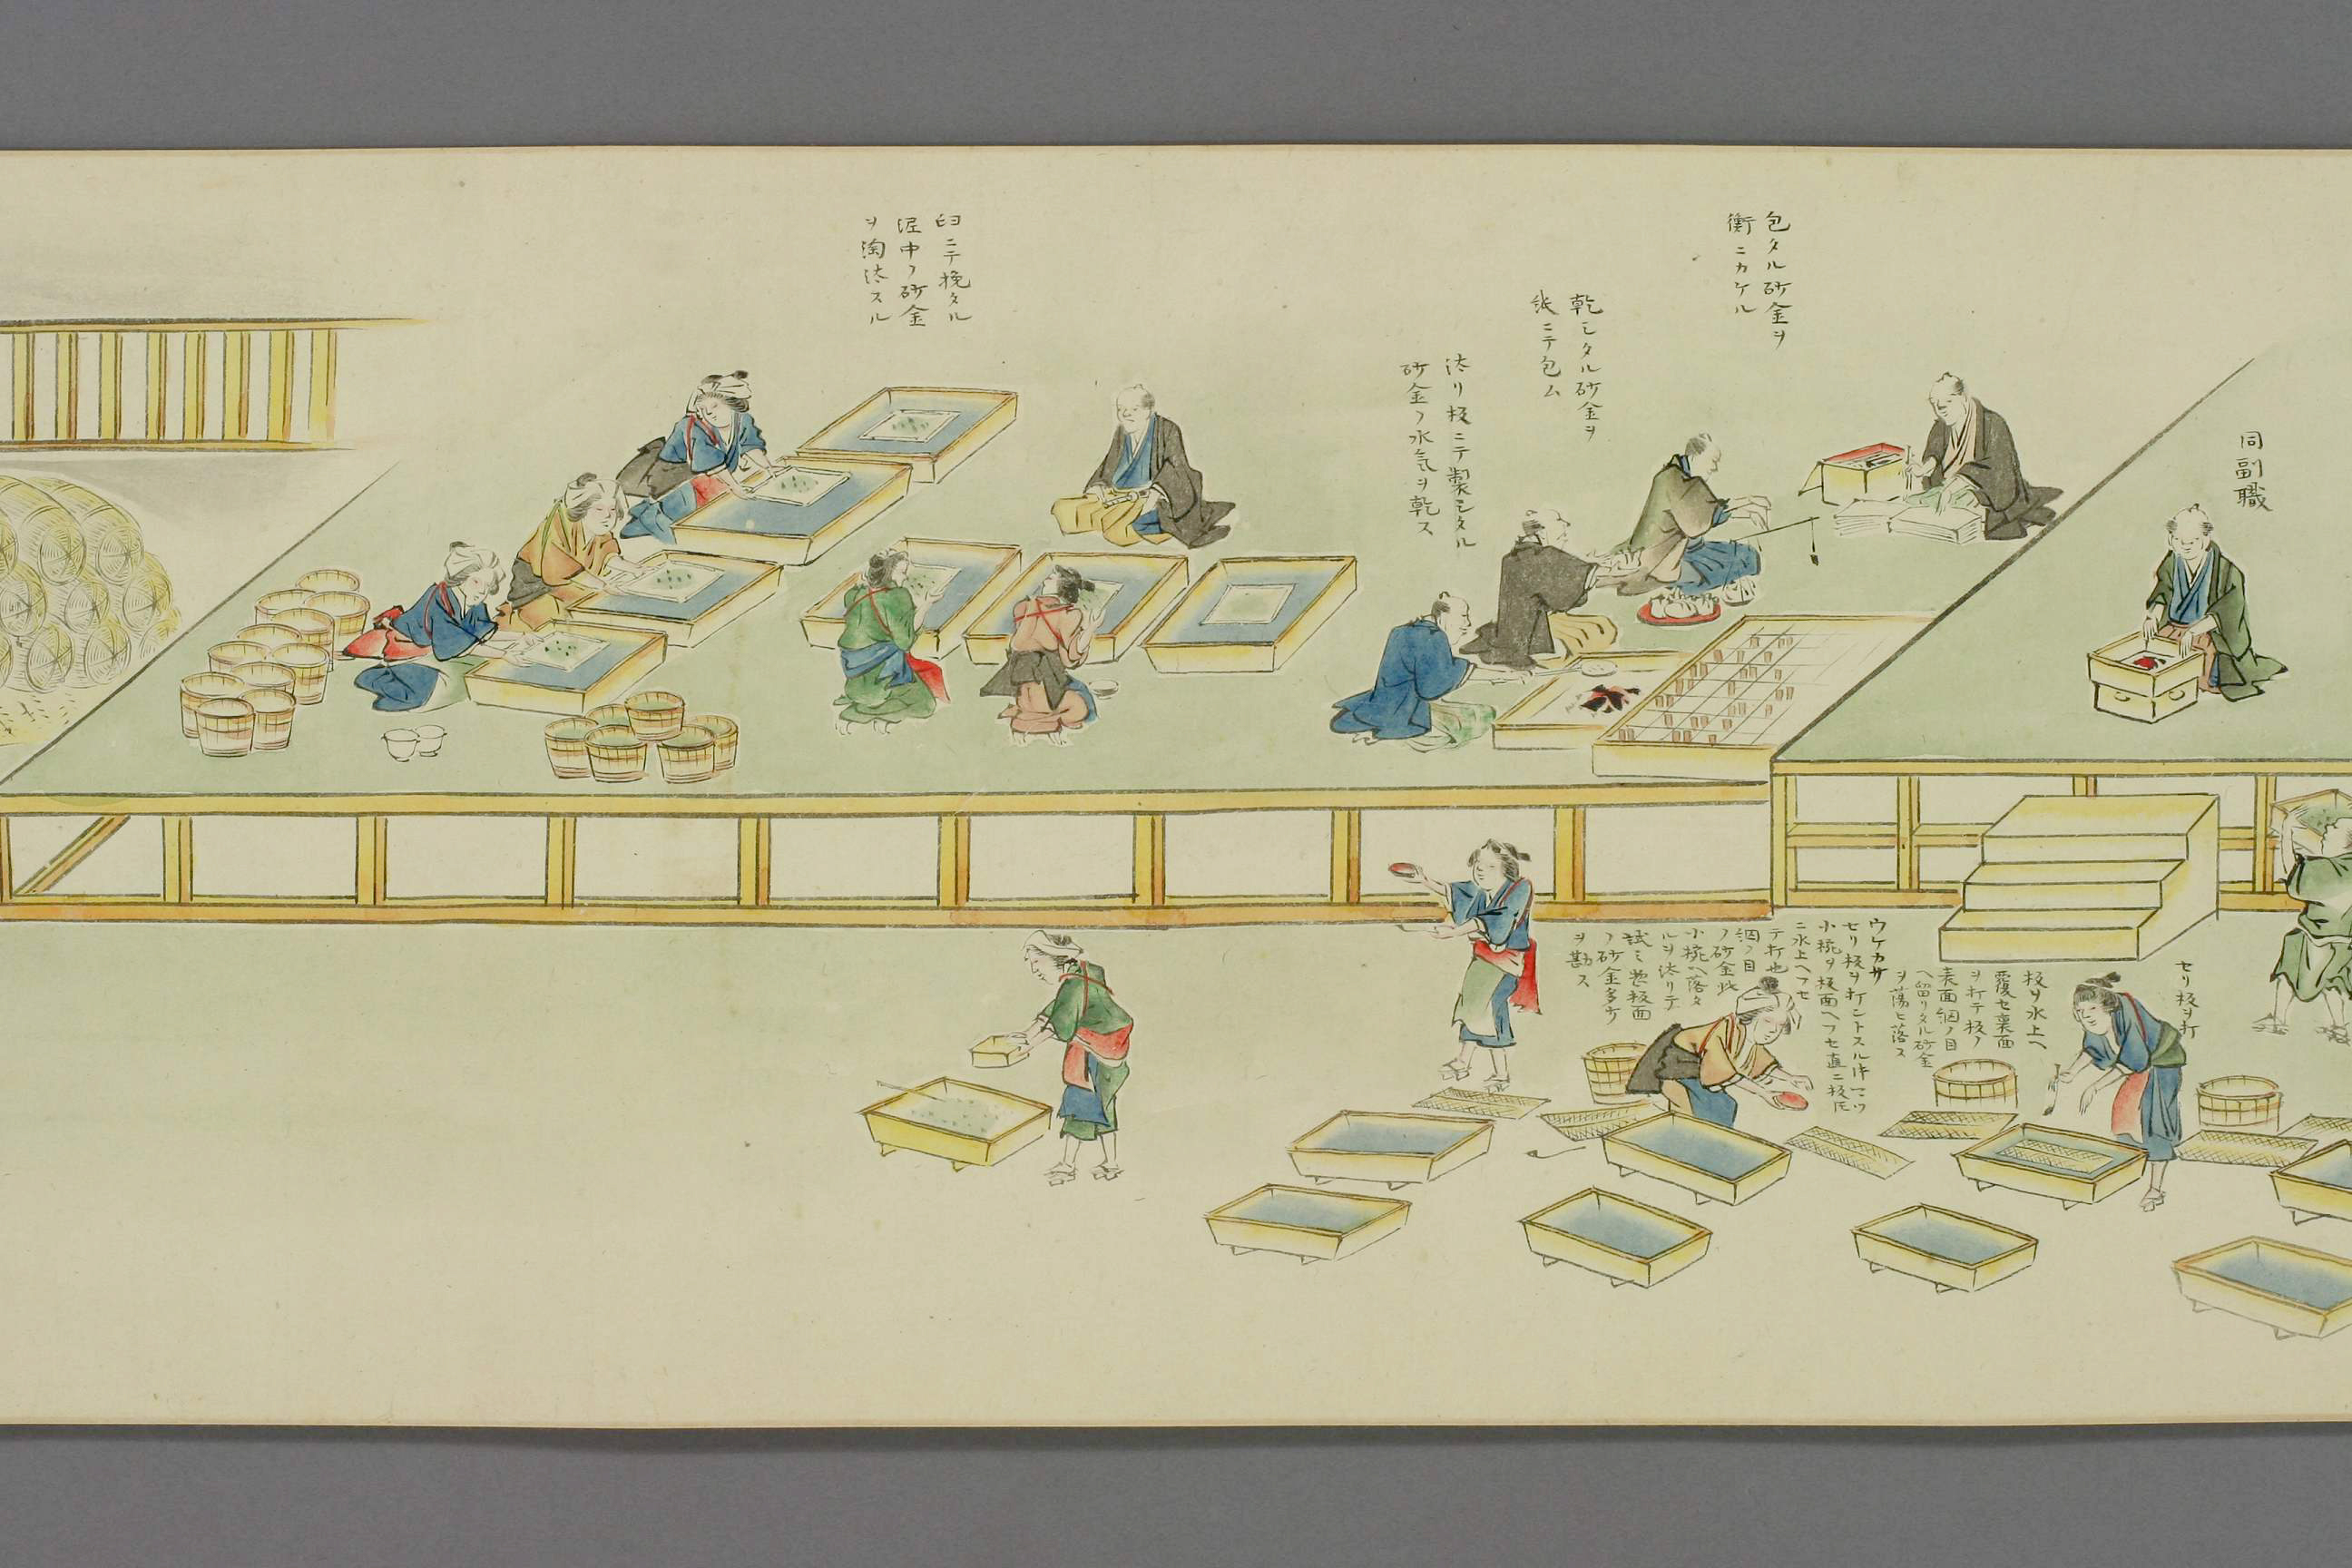 同副職
包タル砂金ヲ
衡ニカケル
乾シタル砂金ヲ
紙ニテ包ム
汰リ板ニテ製シタル
砂金ノ水気ヲ乾ス
臼ニテ挽タル
泥中ノ砂金
ヲ淘汰スル
セリ板ヲ打
板ヲ水上ヘ
覆セ裏面
ヲ打テ板ノ
表面絪ノ目
ヘ留リタル砂金
ヲ蕩ヒ落ス
ウケカサ
セリ板ヲ打ントスル時マツ
小椀ヲ板面ヘフセ直ニ板
ニ水上ヘフセ
テ打也
絪ノ目
ノ砂金此
小椀ヘ落タ
ルヲ汰リテ
試ミ惣板面
ノ砂金多少
ヲ勘ス